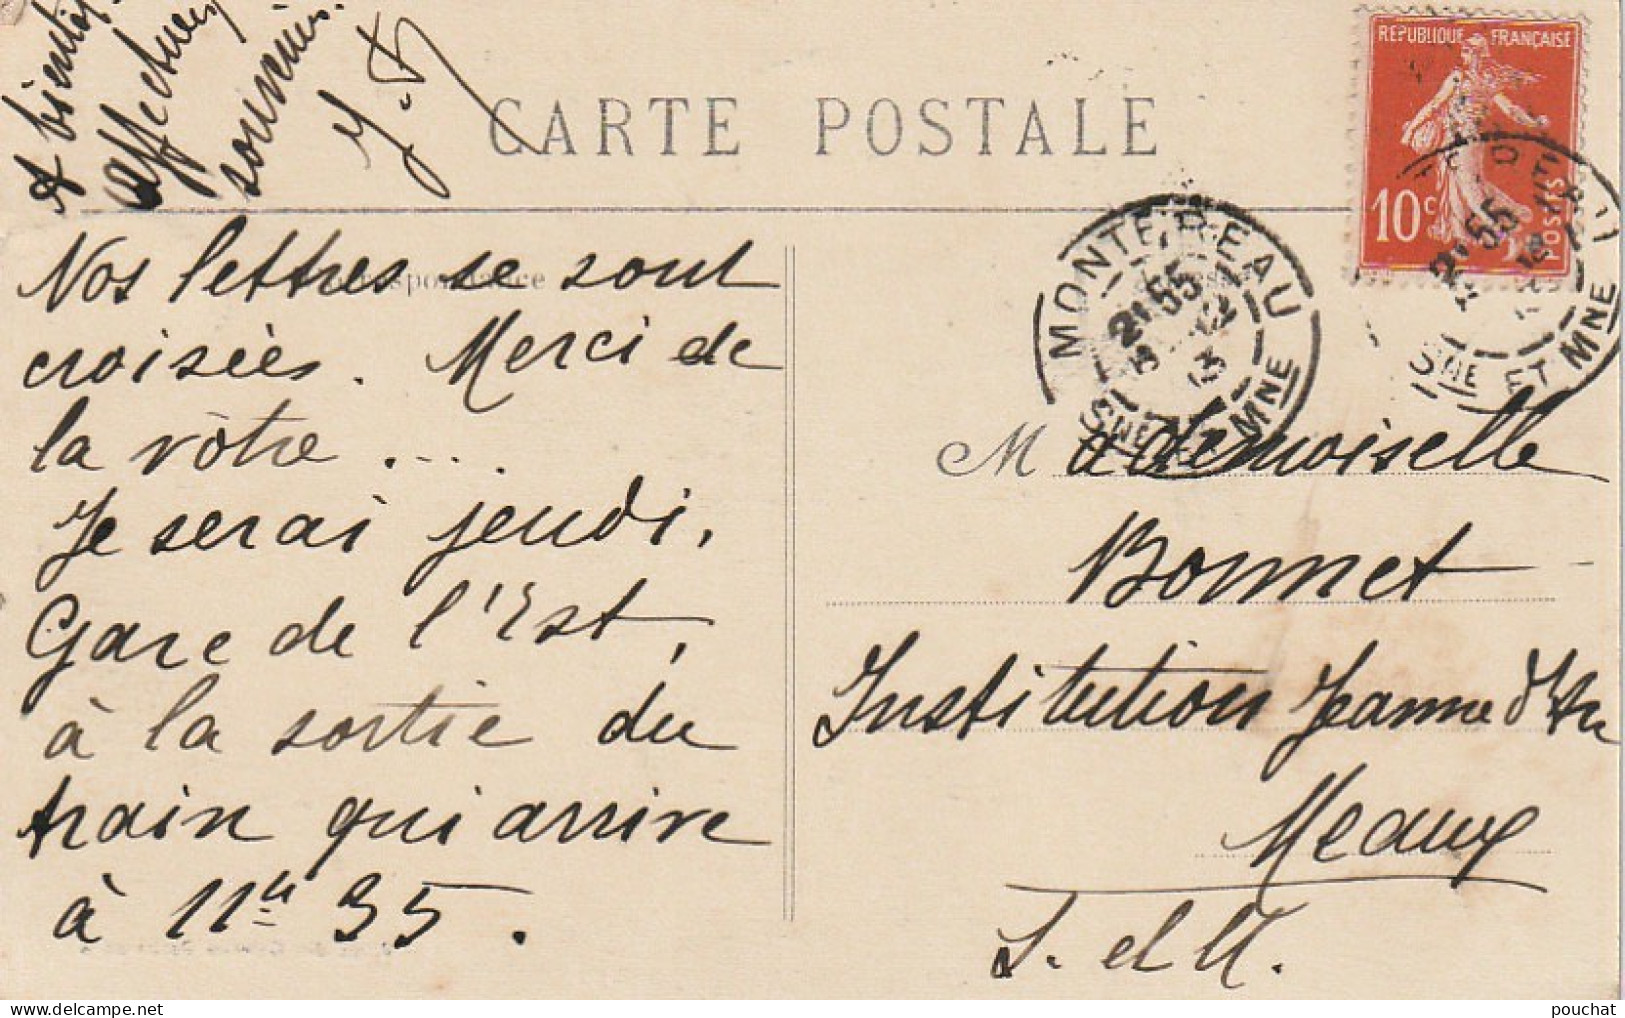 A bientôt.
affectueux
souvenirs.
CARTE POSTALE
REPUBLIQUE FRANÇAISE
10c
POSTES
MONTEREAU
2*55
SNE ET MNE
2*55
SNE ET MNE
Correspondance
Nos lettres se sont
croisées. Merci de
la vôtre ....
Je serai jeudi,
Gare de l'Est,
à la sortie du
train qui arrive
à 11h 35.
Mademoiselle
Bonnet
Institution Jeanne d'Arc
Meaux
S. et M.
pouchat